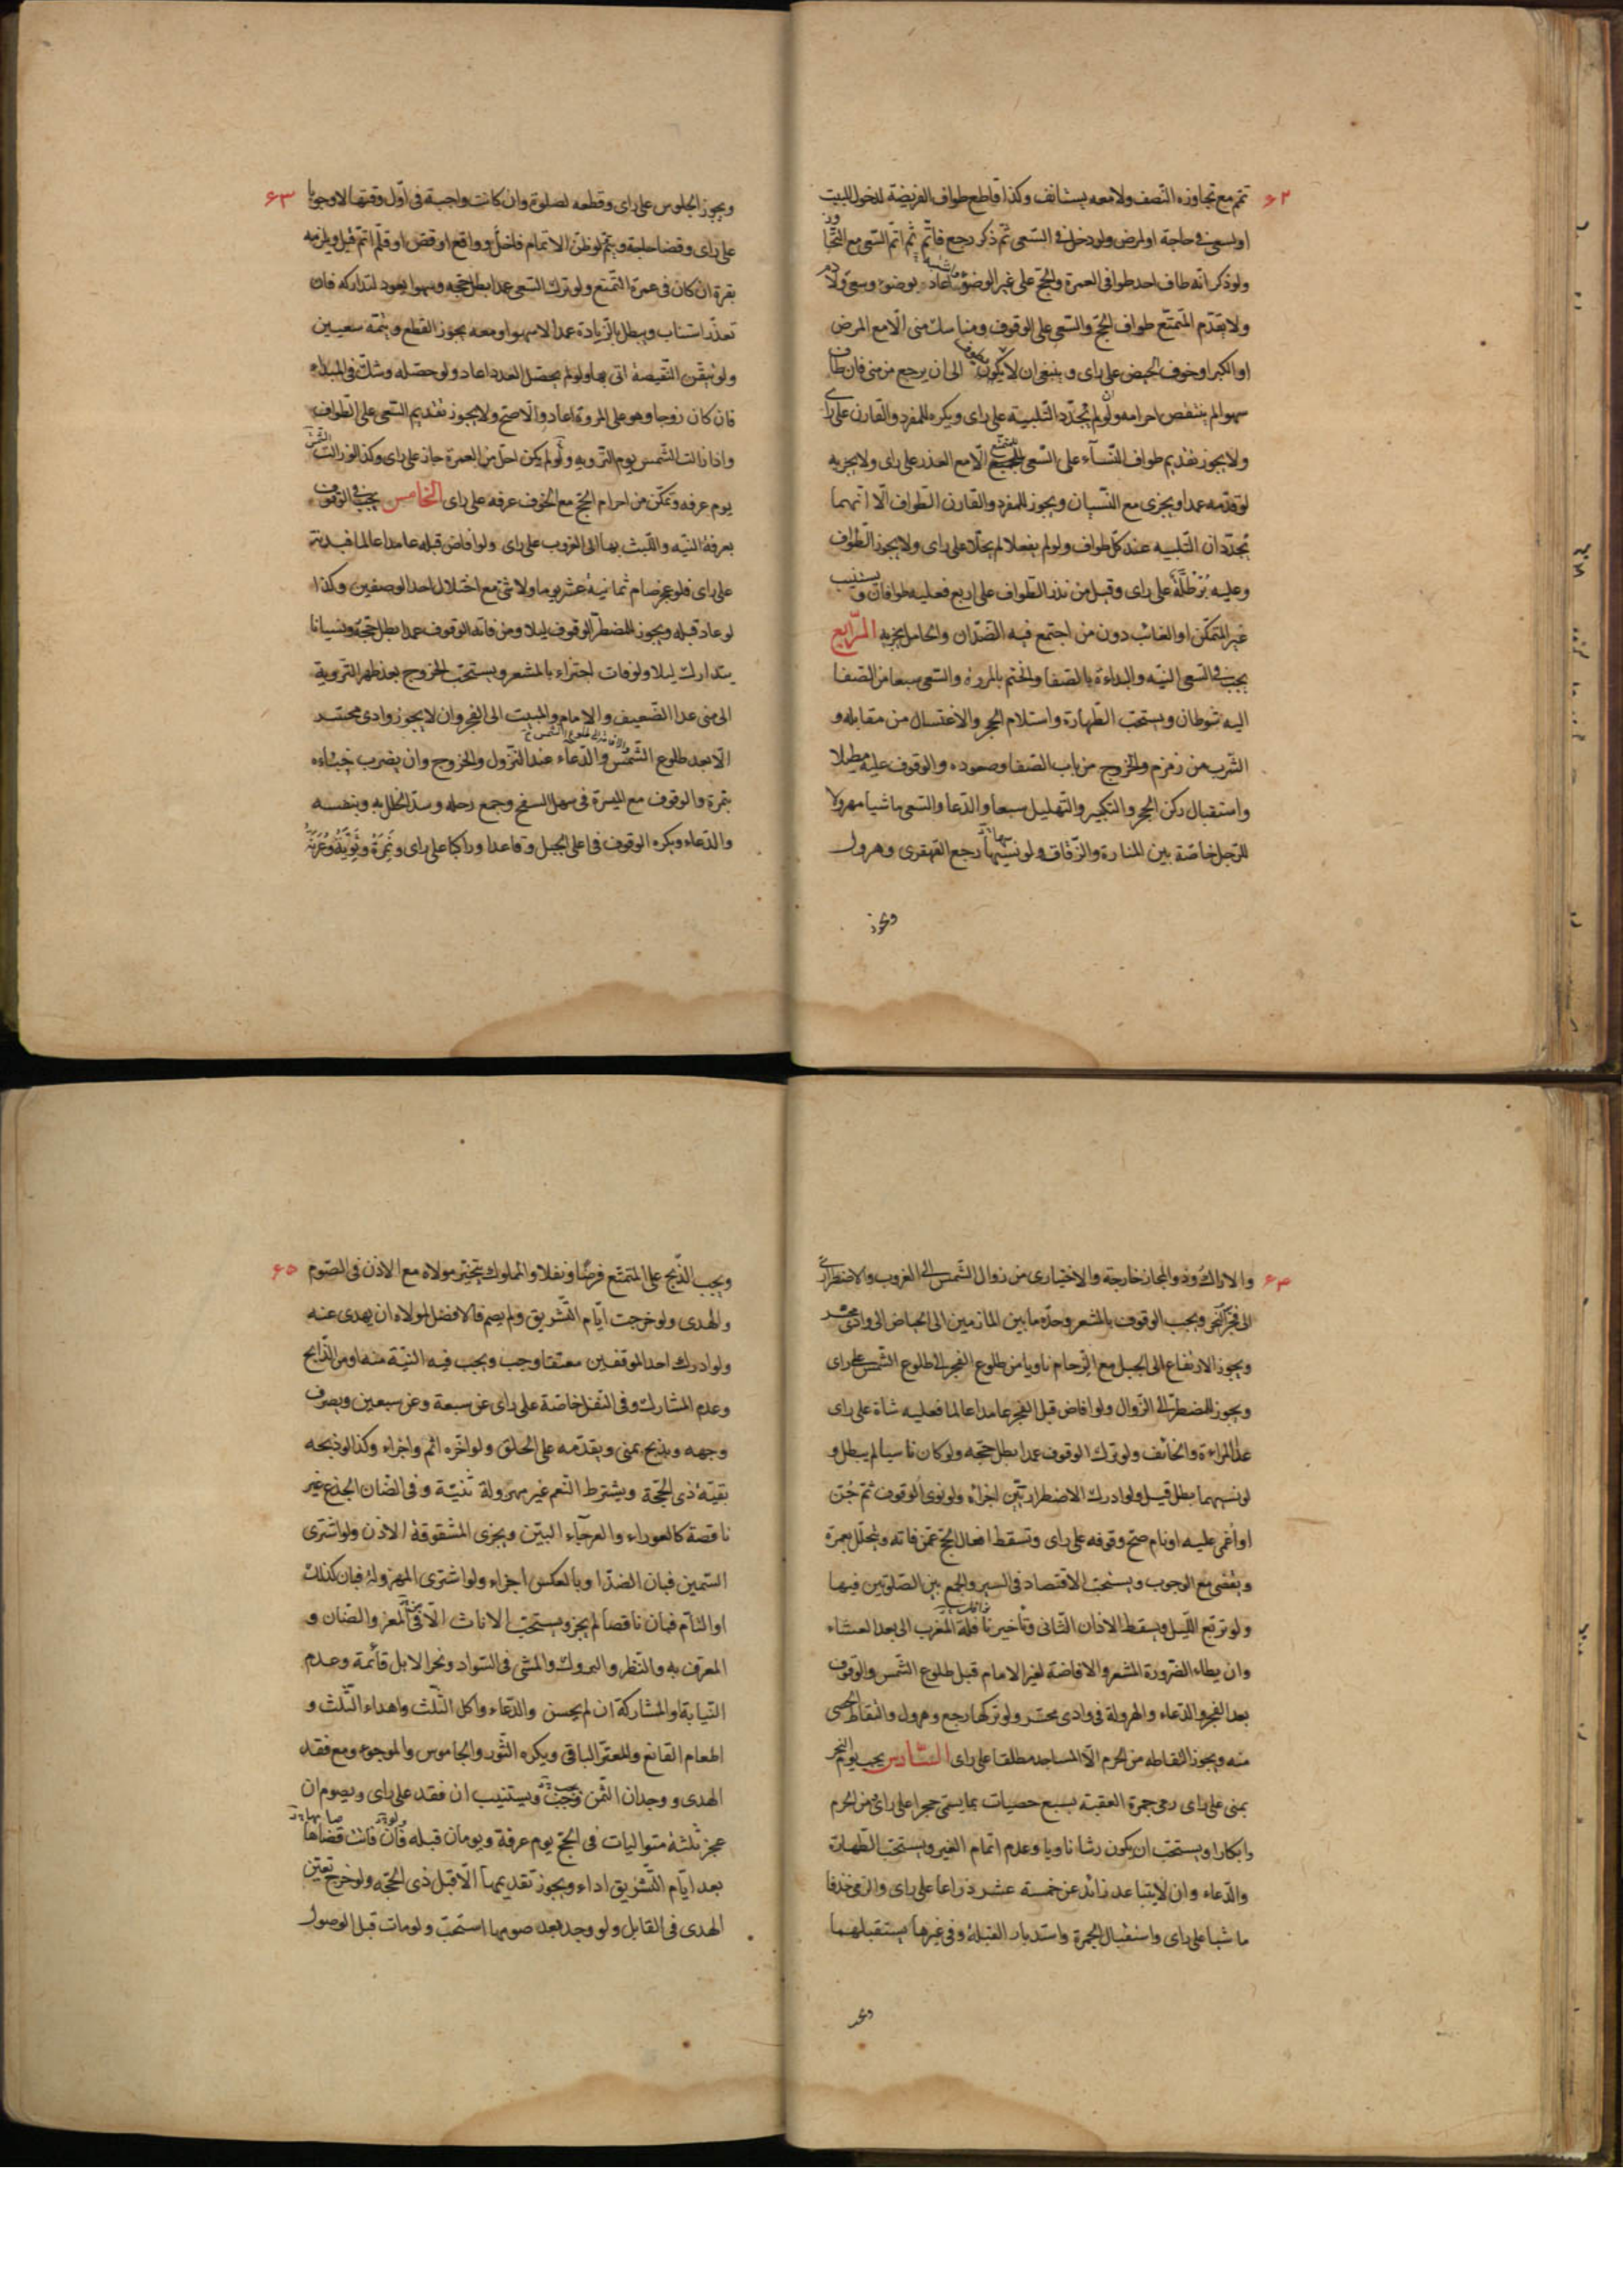 ٦٢
تتم مع تجاوزه النّصف ولا معه يستانف وكذا قاطع طواف الفريضة لدخول البيت
او لسعى فى حاجة او لمرض ولو دخل فى السّعى ثمّ ذكر رجع فاتمّ ثم اتم السّعى مع التّجاوز
ولو ذكر انّه طاف احد طوافى العمرة والحجّ على غير الوضوء اعاده بوضوء وسعى ولا دم
ولا يقدّم المتمتّع طواف الحجّ والسّعى على الوقوف ومناسك منى الّا مع المرض
او الكبر او خوف الحيض على راى وينبغى ان لا يكون الى ان يرجع من منى فان طاف
سهوا لم ينتقض احرامه ولو لم يجدّد التّلبية على راى ويكره للمفرد والقارن على راى
ولا يجوز تقديم طواف النّسآء على السّعى للمتمتّع الّا مع العذر على راى ولا يجزيه
لو قدّمه عمدا ويجزى مع النّسيان ويجوز للمفرد والقارن الطّواف الّا انّهما
يجدّدان التّلبيه عند كلّ طواف ولو لم يفعلا لم يحلّا على راى ولا يجوز الطّواف
وعليه بُرْطُلّة على راى وقيل من نذر الطّواف على اربع فعليه طوافان ويستنيب
غير المتمكّن او الغائب دون من اجتمع فيه الضّدّان والحامل يجزيه الرّابع
يجب فى السّعى النيّه والبداءة بالصّفا والختم بالمروة والسّعى سبعا من الصّفا
اليه شوطان ويستحبّ الطّهارة واستلام الحجر والاغتسال من مقابله و
الشّرب من زمزم والخروج من باب الصّفا وصعوده والوقوف عليه مطيلا
واستقبال ركن الحجر والتكبير والتّهليل سبعا والدّعا والسّعى ماشيا مهرولا
للرّجل خاصّة بين المنارة والزّقاق ولو نسيها رجع القهقرى وهرول
ويجوز
٦٣
ويجوز الجلوس على راى وقطعه لصلوة وان كانت واجبة فى اوّل وقتها لا وجوبا
على راى وقضا حاجة ويتمّ لو ظنّ الاتمام فاحلّ وواقع او قصّ او قلّم اتمّ قيل ويلزمه
بقرة ان كان فى عمرة التّمتع ولو ترك السّعى عمدا بطل حجّه وسهوا يعود لتداركه فان
تعذّر استناب ويبطل بالزّيادة عمدا لا سهوا ومعه يجوز القطع وتتمّه سعيين
ولو تيقّن النّقيصة اتى بها ولو لم يحصّل العدد اعاد ولو حصّله وشكّ فى المبداء
فان كان زوجا وهو على المروة اعاد والّا صحّ ولا يجوز تقديم السّعى على الطّواف
واذا زالت الشّمس يوم التّرويه ولو لم يكن احلّ من العمرة جاز على راى وكذا لو زالت الشّمس
يوم عرفه وتمكّن من احرام الحجّ مع الخوف عرفه على راى الخامس يجب فى الوقوف
بعرفة النيّه واللّبث بها الى الغروب على راى ولو افاض قبله عامدا عالما فبدنة
على راى فلو عجز صام ثمانية عشر يوما ولا شئ مع اختلال احد الوصفين وكذا
لو عاد قبله ويجوز للمضطرّ الوقوف ليلا ومن فاته الوقوف عمدا بطل حجّه ونسيانا
يتدارك ليلا ولو فات اجتزاء بالمشعر ويستحبّ الخروج بعد ظهر التّروية
الى منى عدا الضّعيف والامام والمبيت الى الفجر وان لا يجوز وادى محسّر
الّا بعد طلوع الشّمس والدّعاء عند النّزول والخروج وان يضرب خباءه
بنمرة والوقوف مع الميسرة فى سهل السفح وجمع رحله وسدّ الخلل به وبنفسه
والدّعاء ويكره الوقوف فى اعلى الجبل وقاعدا وراكبا على راى ونَمِرَة وثَوِيّة وعُرَنَة
٦٤
والاراك وذو المجاز خارجة والاختيارى من زوال الشّمس الى الغروب والاضطرارى
الى فجر النّحر ويجب الوقوف بالمشعر وحدّه ما بين المازمين الى الحياض الى وادى محسّر
ويجوز الارتفاع الى الجبل مع الزّحام ناويا من طلوع الفجر الى طلوع الشّمس على راى
ويجوز للمضطرّ الى الزّوال ولو افاض قبل الفجر عامدا عالما فعليه شاة على راى
عدا المراءة والخائف ولو ترك الوقوف عمدا بطل حجّه ولو كان ناسيا لم يبطل و
لو نسيهما بطل قيل ولو ادرك الاضطراريّين اجزاء ولو نوى الوقوف ثمّ جُنّ
او اُغمى عليه او نام صحّ وقوفه على راى وتسقط افعال الحجّ عمّن فاته ويتحلّل بعمرة
ويقضى مع الوجوب ويستحبّ الاقتصاد فى السير والجمع بين الصّلوتين فيها
ولو تربّع اللّيل ويسقط الاذان الثّانى وتاخير نافلة المغرب الى بعد العشاء
وان يطاء الضّرورة المشعر والافاضة لغير الامام قبل طلوع الشّمس والوقوف
بعد الفجر والدّعاء والهرولة فى وادى محسّر ولو تركها رجع وهرول والتقاط الحصى
منه ويجوز التقاطه من الحرم الّا المساجد مطلقا على راى السّادس يجب يوم النّحر
بمنى على راى رمى جمرة العقبة بسبع حصيات بما يسمّى حجرا على راى من الحرم
وابكارا ويستحبّ ان يكون رشا ناويا وعدم اتمام الغير ويستحبّ الطّهارة
والدّعاء وان لا يتباعد زائد عن خمسة عشر ذراعا على راى والرمى خذفا
ماشيا على راى واستقبال الجمرة واستدبار القبلة وفى غيرها يستقبلهما
٦٥
ويجب الذّبح على المتمتّع فرضًا ونفلا والمملوك يتخيّر مولاه مع الاذن فى الصّوم
والهدى ولو خرجت ايّام التّشريق ولم يصم فالافضل لمولاه ان يهدى عنه
ولو ادرك احد الموقفين معتقا وجب ويجب فيه النيّة منه او من الذّابح
وعدم المشارك وفى النّفل خاصّة على راى عن سبعة وعن سبعين ويصرف
وجهه ويذبح بمنى ويقدّمه على الحلق ولو اخّره اثم واجزاء وكذا لو ذبحه
بقيّة ذى الحجّة ويشترط النّعم غير مهزولة ثنيّة وفى الضّان الجذع غير
ناقصة كالعوراء والعرجآء البيّن ويجزى المشقوقة الاذن ولو اشترى
السّمين فبان الضدّ او بالعكس اجزاء ولو اشترى المهزولة فبان كذلك
او التّام فبان ناقصا لم يجز ويستحبّ الاناث الّا فى المعز والضّان و
المعرّف به والنّظر والبروك والمشى فى السّواد ونحر الابل قائمة وعدم
النّيابة او المشاركة ان لم يحسن والدّعاء واكل الثّلث واهداء الثّلث و
اطعام القانع والمعترّ الباقى ويكره الثّور والجاموس والموجوء ومع فقد
الهدى ووجدان الثّمن ويستنيب ان فقد على راى ويصوم ان
عجز ثلثة متواليات فى الحجّ يوم عرفة ويومان قبله فان فاتت قضاها
بعد ايّام التّشريق اداء ويجوز تقديمها الّا قبل ذى الحجّه ولو خرج تعيّن
الهدى فى القابل ولو وجد بعد صومها استحبّ ولو مات قبل الوصول